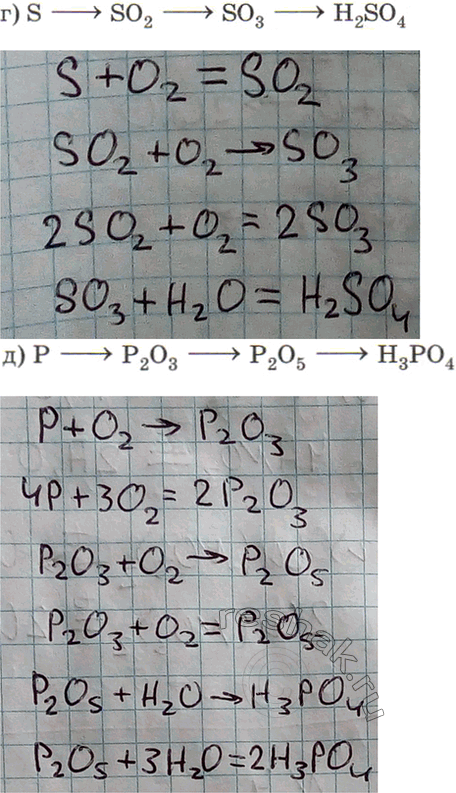 г) S ⟶ SO₂ ⟶ SO₃ ⟶ H₂SO₄
S + O₂ = SO₂
SO₂ + O₂ → SO₃
2SO₂ + O₂ = 2SO₃
SO₃ + H₂O = H₂SO₄
д) P ⟶ P₂O₃ ⟶ P₂O₅ ⟶ H₃PO₄
P + O₂ → P₂O₃
4P + 3O₂ = 2P₂O₃
P₂O₃ + O₂ → P₂O₅
P₂O₃ + O₂ = P₂O₅
reshak.ru
P₂O₅ + H₂O → H₃PO₄
P₂O₅ + 3H₂O = 2H₃PO₄